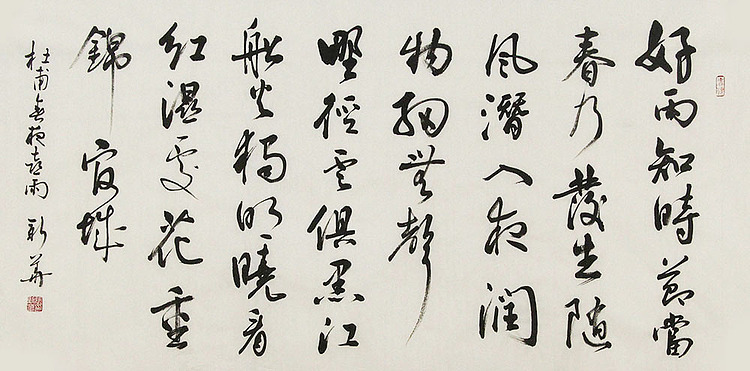 好雨知時節當
春乃發生隨
風潛入夜潤
物細無聲
野徑云俱黑江
船火獨明曉看
紅濕處花重
錦官城
杜甫春夜喜雨 新華